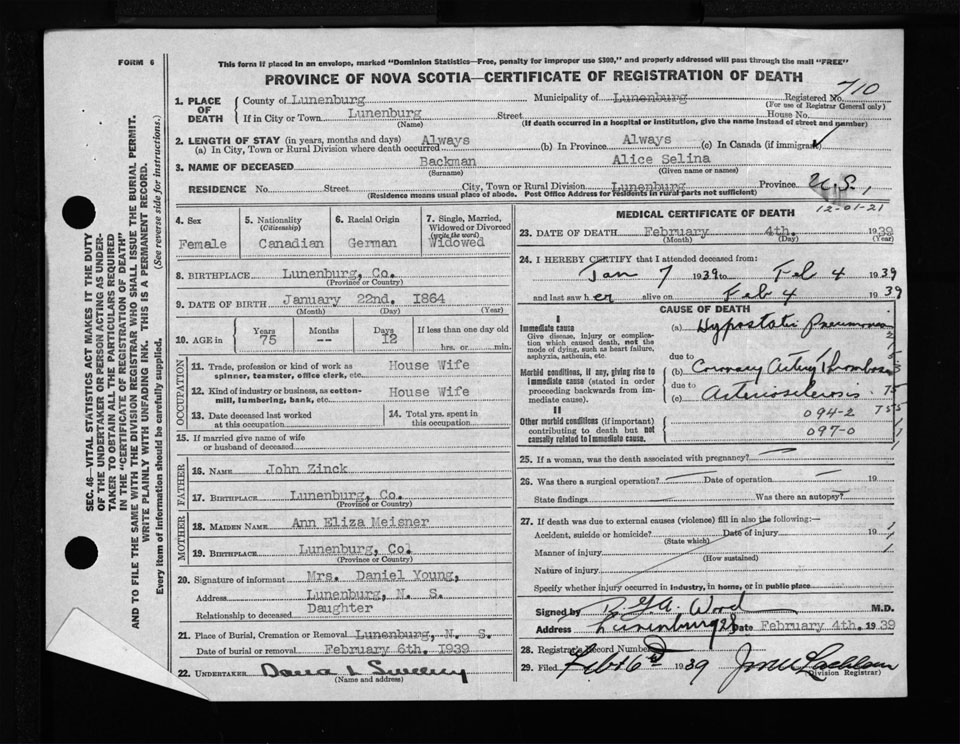 FORM 6
This form if placed in an envelope, marked "Dominion Statistics—Free, penalty for improper use $300," and properly addressed will pass through the mail "FREE"
PROVINCE OF NOVA SCOTIA—CERTIFICATE OF REGISTRATION OF DEATH
SEC. 46—VITAL STATISTICS ACT MAKES IT THE DUTY
OF THE UNDERTAKER OR PERSON ACTING AS UNDER-
TAKER TO OBTAIN ALL THE PARTICULARS REQUIRED
IN THE "CERTIFICATE OF REGISTRATION OF DEATH"
AND TO FILE THE SAME WITH THE DIVISION REGISTRAR WHO SHALL ISSUE THE BURIAL PERMIT.
WRITE PLAINLY WITH UNFADING INK. THIS IS A PERMANENT RECORD.
Every item of information should be carefully supplied. (See reverse side for instructions.)
1. PLACE OF DEATH County of Lunenburg Municipality of Lunenburg Registered No. 710
(For use of Registrar General only)
If in City or Town Lunenburg Street House No.
(Name) (If death occurred in a hospital or institution, give the name instead of street and number)
2. LENGTH OF STAY (in years, months and days)
(a) In City, Town or Rural Division where death occurred Always (b) In Province Always (c) In Canada (if immigrant) ✓
3. NAME OF DECEASED Backman Alice Selina
(Surname) (Given name or names)
RESIDENCE No. Street City, Town or Rural Division Lunenburg Province N.S.
(Residence means usual place of abode. Post Office Address for residents in rural parts not sufficient)
12-01-21
4. Sex
Female
5. Nationality
(Citizenship)
Canadian
6. Racial Origin
German
7. Single, Married,
Widowed or Divorced
(write the word)
Widowed
8. BIRTHPLACE Lunenburg, Co.
(Province or Country)
9. DATE OF BIRTH January 22nd. 1864
(Month) (Day) (Year)
10. AGE in Years Months Days If less than one day old
75 -- 12 hrs. or min.
OCCUPATION
11. Trade, profession or kind of work as
spinner, teamster, office clerk, etc. House Wife
12. Kind of industry or business, as cotton-
mill, lumbering, bank, etc. House Wife
13. Date deceased last worked
at this occupation
14. Total yrs. spent in
this occupation
15. If married give name of wife
or husband of deceased
FATHER
16. NAME John Zinck
17. BIRTHPLACE Lunenburg, Co.
(Province or Country)
MOTHER
18. MAIDEN NAME Ann Eliza Meisner
19. BIRTHPLACE Lunenburg, Co.
(Province or Country)
20. Signature of informant Mrs. Daniel Young,
Address Lunenburg, N. S.
Relationship to deceased Daughter
21. Place of Burial, Cremation or Removal Lunenburg, N. S.
Date of burial or removal February 6th. 1939
22. UNDERTAKER
(Name and address)
MEDICAL CERTIFICATE OF DEATH
23. DATE OF DEATH February 4th. 1939
(Month) (Day) (Year)
24. I HEREBY CERTIFY that I attended deceased from:
Jan 7 1939 to Feb 4 1939
and last saw her alive on Feb 4 1939
CAUSE OF DEATH
I
Immediate cause
Give disease, injury or complica-
tion which caused death, not the
mode of dying, such as heart failure,
asphyxia, asthenia, etc.
(a) Hypostatic Pneumonia
due to
Morbid conditions, if any, giving rise to
immediate cause (stated in order
proceeding backwards from im-
mediate cause).
(b) Coronary Artery Thrombosis
due to
(c) Arteriosclerosis
II
Other morbid conditions (if important)
contributing to death but not
causally related to immediate cause.
094-2
097-0
25. If a woman, was the death associated with pregnancy?
26. Was there a surgical operation? Date of operation 19
State findings Was there an autopsy?
27. If death was due to external causes (violence) fill in also the following:—
Accident, suicide or homicide? Date of injury 19
(State which)
Manner of injury
(How sustained)
Nature of injury
Specify whether injury occurred in industry, in home, or in public place
Signed by R. G. A. Wood M.D.
Address Lunenburg NS Date February 4th. 1939
28. Registrar's Record Number
29. Filed Feb 6th 1939
(Division Registrar)